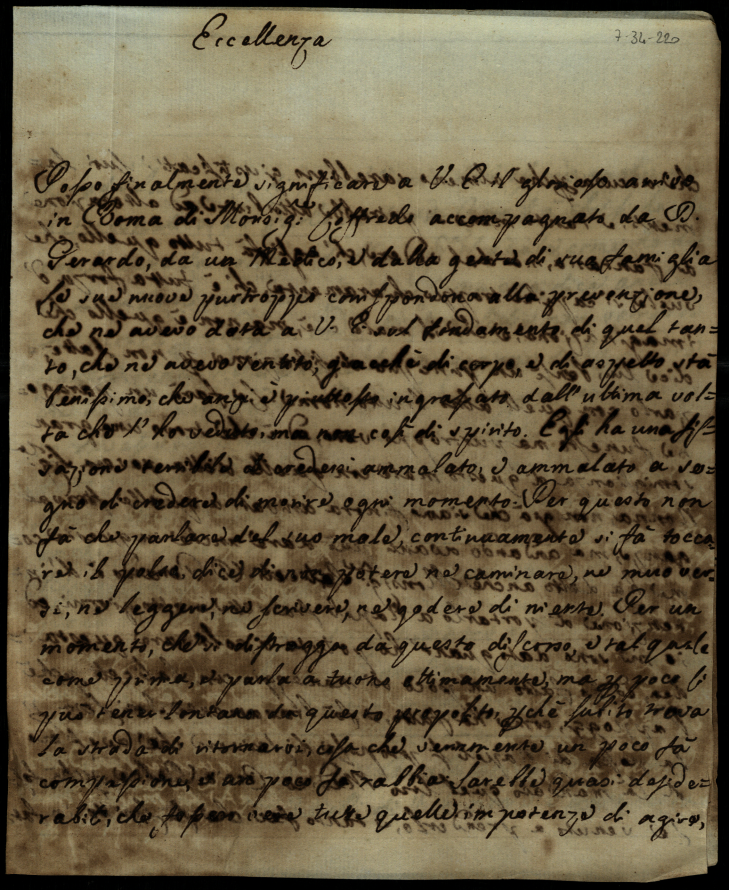 Eccellenza
7-34-220
Posso finalmente significare a V. E. il arrivo
in Roma di Monsig. accompagnato da D.
Gerardo, da un Medico, e dalla gente di sua famiglia
Le sue nuove purtroppo corrispondono alla prevenzione,
che ne avevo data a V. E. sul fondamento di quel tan=
to, che ne avevo sentito, giacchè di corpo, e di aspetto stà
benissimo, che anzi è piuttosto ingrassato dall'ultima vol=
ta che l'ho veduto, ma non così di spirito. Egli ha una fis=
sazione terribile di credersi ammalato, e ammalato a se=
gno di credere di morire ogni momento. Per questo non
fà che parlare del suo male, continuamente si fà tocca=
re il polso, dice di non potere ne caminare, ne muover=
si, ne leggere, ne scrivere, ne godere di niente. Per un
momento, che si distragga da questo discorso, e tal quale
come prima, e parla a tuono ottimamente, ma p poco si
può tener lontano da questo proposito, pchè subito trova
la strada di ritornarvi, cosa che veramente un poco fà
compassione, e un poco fà rabbia. Sarebbe quasi deside=
rabile, che fossero vere tutte quelle impotenze di agire,